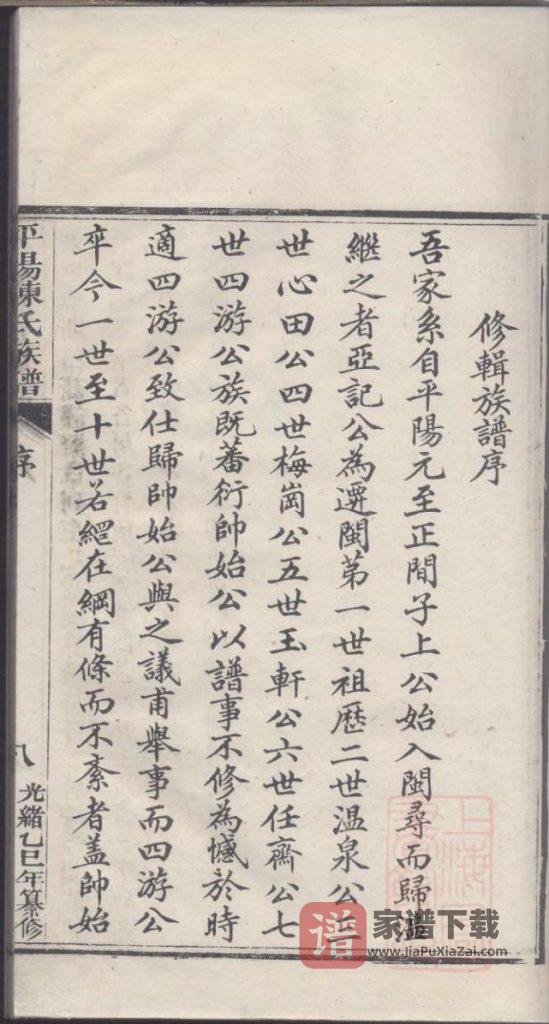 修輯族譜序
吾家系自平陽元至正間子上公始入閩尋而歸
繼之者亞記公為遷閩第一世祖歷二世温泉公三
世心田公四世梅崗公五世玉軒公六世任齋公七
世四游公族既蕃衍帥始公以譜事不修為憾於時
適四游公致仕歸帥始公與之議甫舉事而四游公
卒今一世至十世若網在綱有條而不紊者盖帥始
平陽陳氏族譜
序
八
光緒乙巳年纂修
上海
譜
家谱下载
www.JiaPuXiaZai.com